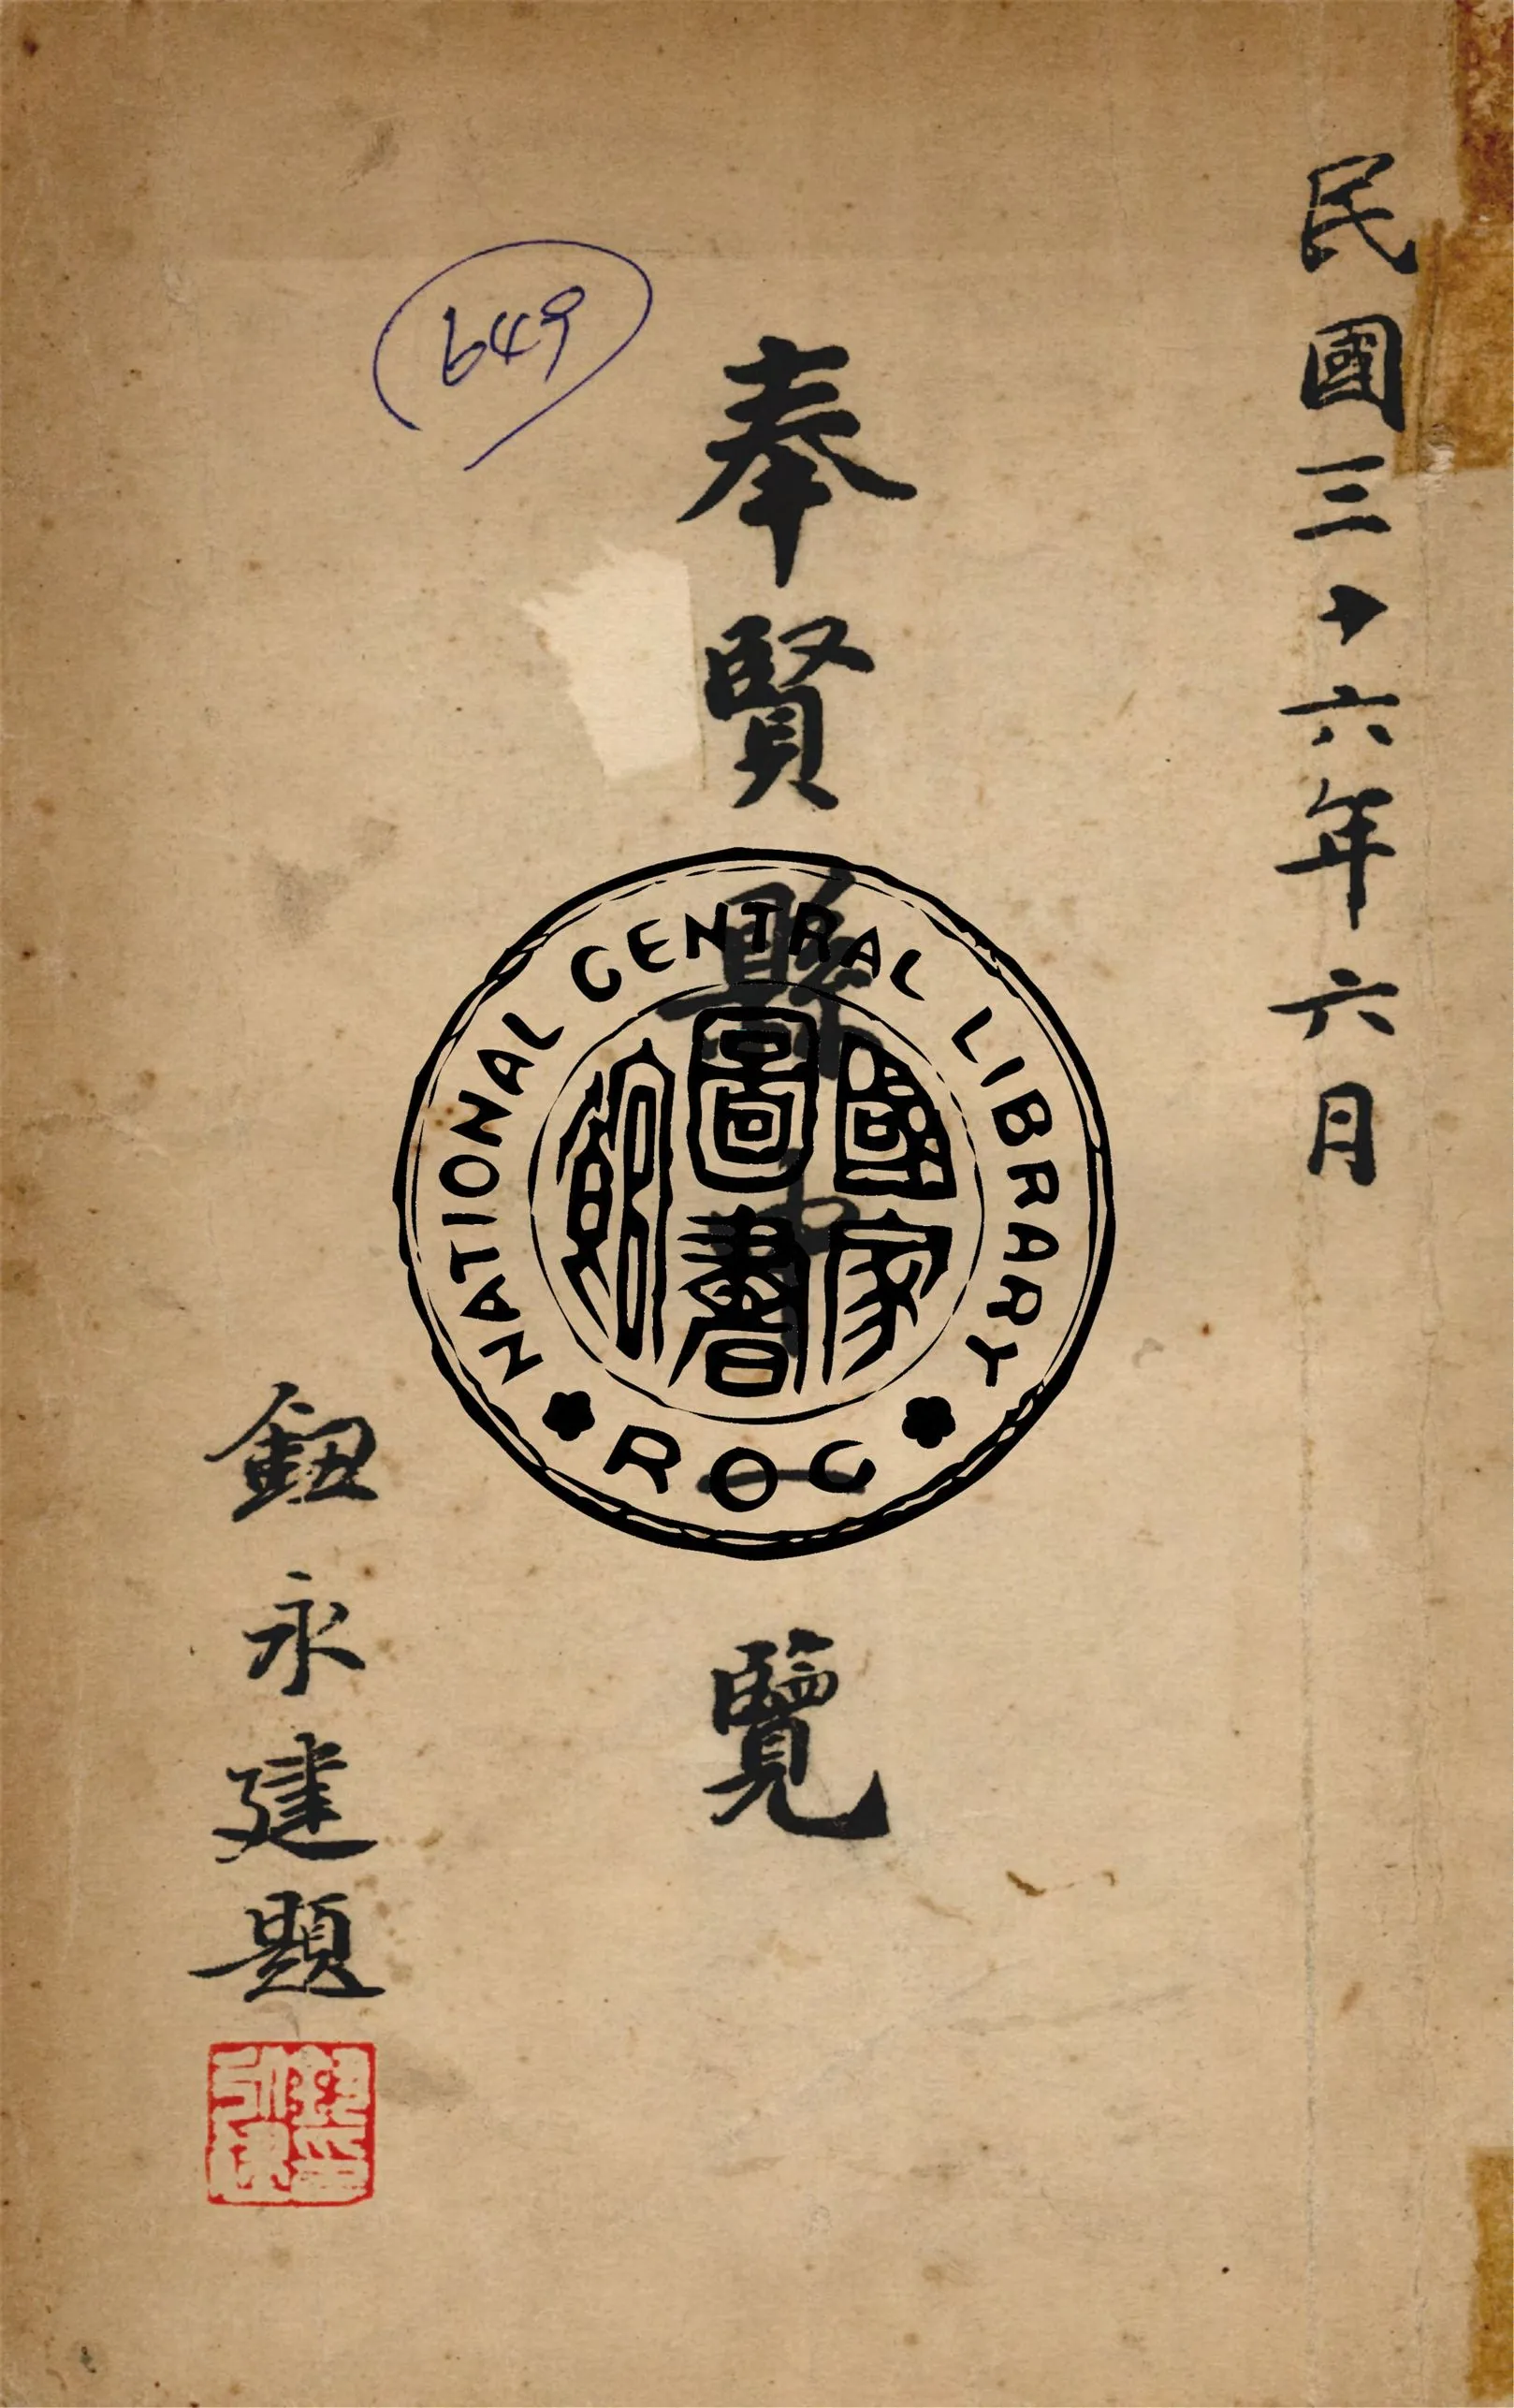 民國三十六年六月
奉賢縣一覽
鈕永建題
649
NATIONAL CENTRAL LIBRARY
ROC
國家
圖書
館